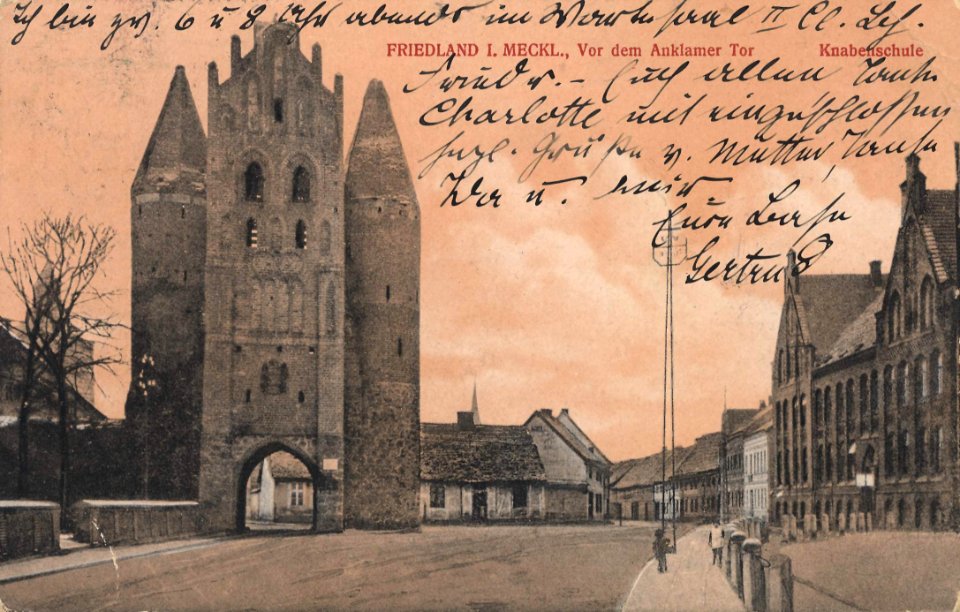 Ich bin zw. 6 u 8 Uhr abends im Wartesaal II Cl.
FRIEDLAND I. MECKL., Vor dem Anklamer Tor Knabenschule
Euch allen Tante
Charlotte mit eingeschlossen
herzl. Grüße v. Mutter, Tante
u. mir
Eure
Gertrud